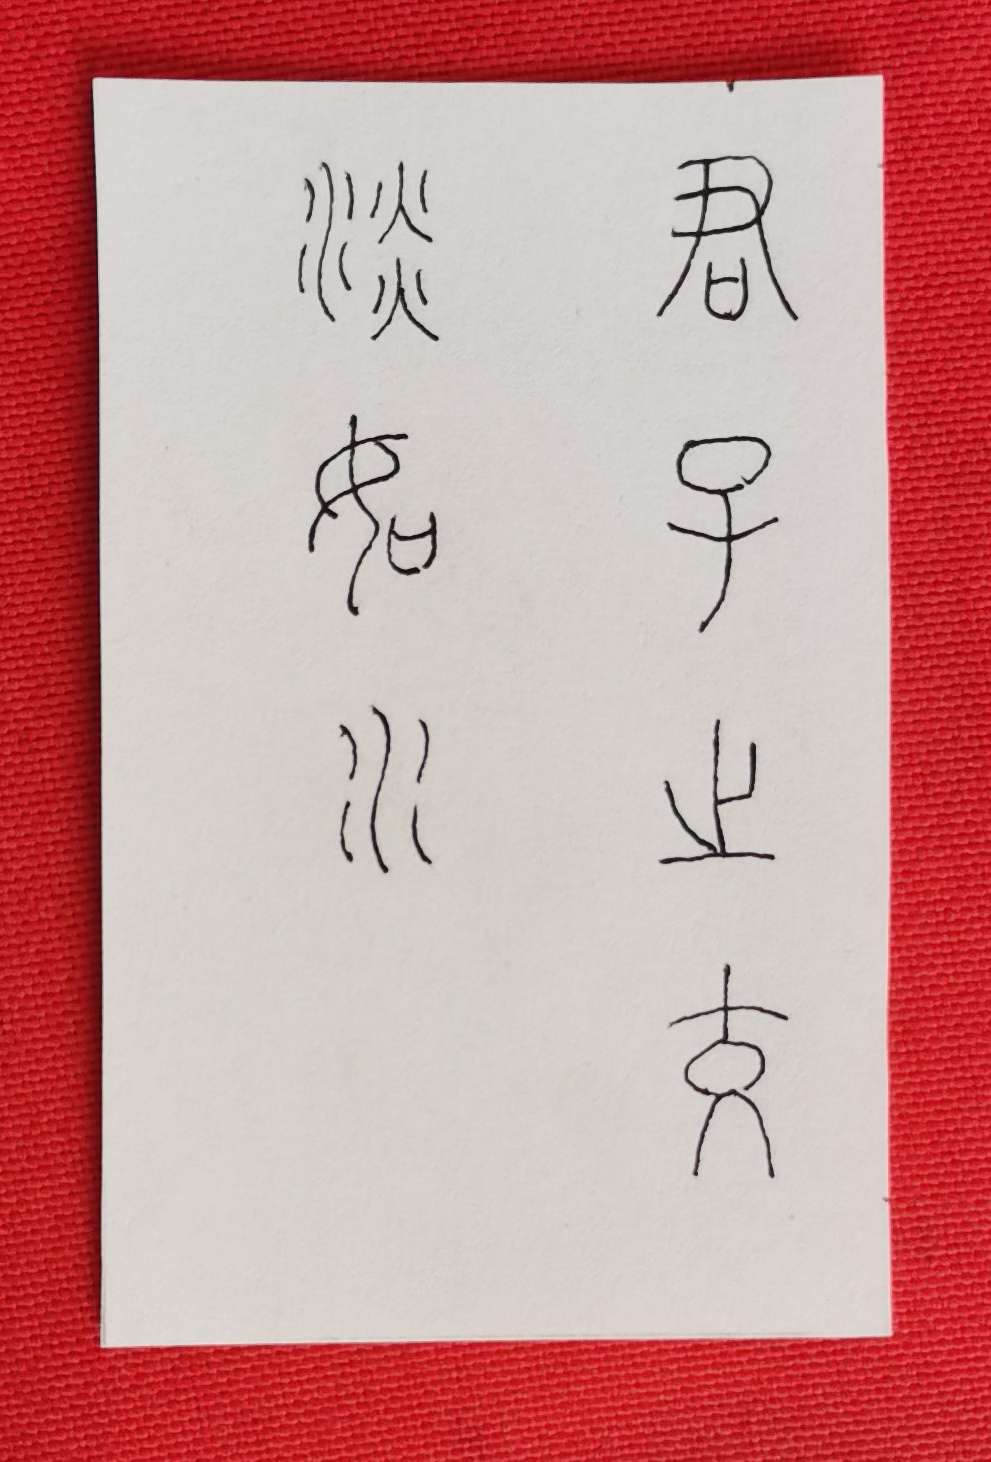 君子之交
淡如水